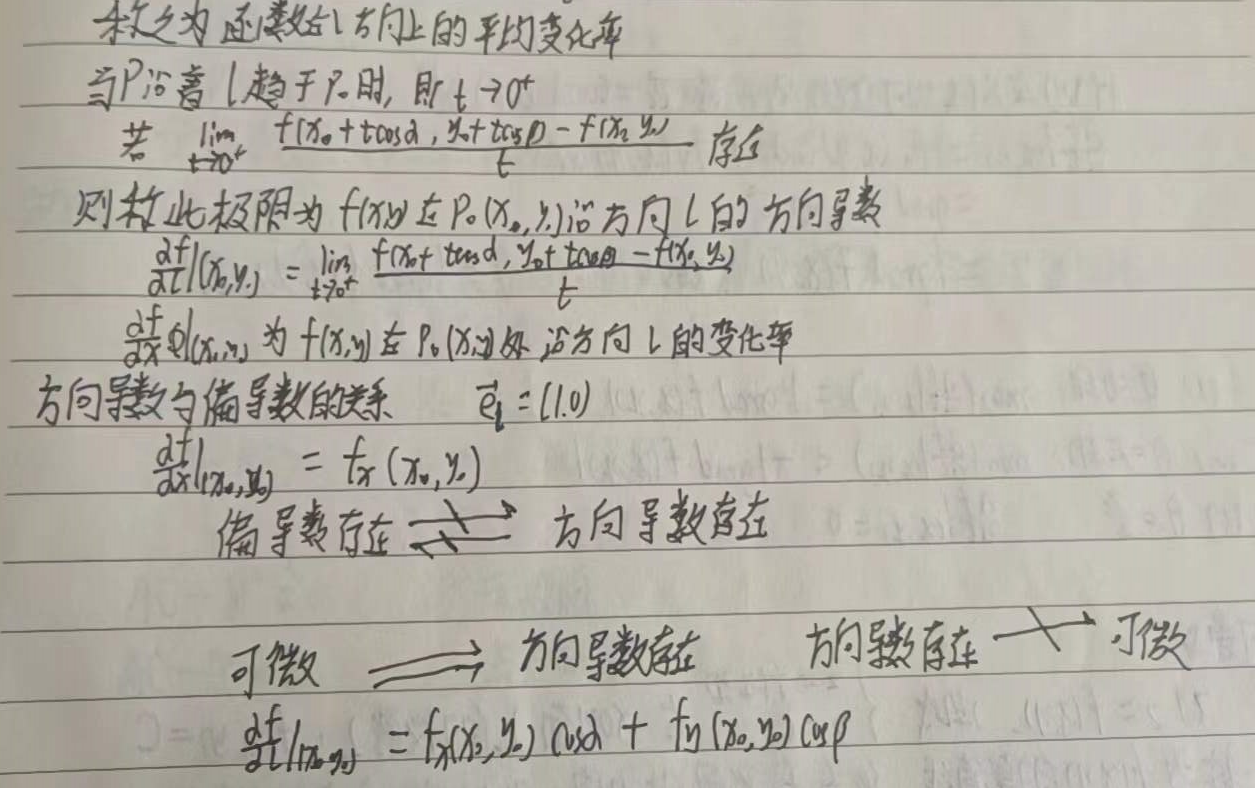 称之为函数在l方向上的平均变化率
当P沿着l趋于P₀时, 即t→0⁺
若 lim t→0⁺ f(x₀+tcosα, y₀+tcosβ) - f(x₀, y₀) / t 存在
则称此极限为f(x,y)在P₀(x₀,y₀)沿方向l的方向导数
∂f/∂l|(x₀,y₀) = lim t→0⁺ f(x₀+tcosα, y₀+tcosβ) - f(x₀, y₀) / t
∂f/∂x|(x₀,y₀)为f(x,y)在P₀(x,y)处沿方向l的变化率
方向导数与偏导数的关系 e⃗ₗ=(1.0)
∂f/∂x|(x₀,y₀) = fx(x₀,y₀)
偏导数存在 ⇌ 方向导数存在
可微 ⇒ 方向导数存在 方向导数存在 ↛ 可微
∂f/∂l|(x₀,y₀) = fx(x₀,y₀)cosα + fy(x₀,y₀)cosβ